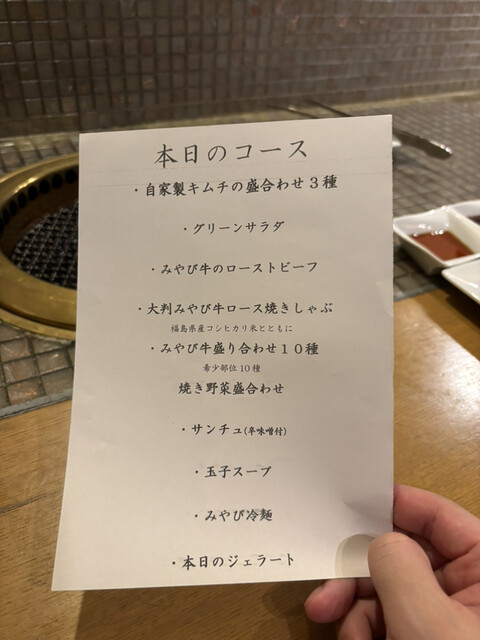 本日のコース
・自家製キムチの盛合わせ３種
・グリーンサラダ
・みやび牛のローストビーフ
・大判みやび牛ロース焼きしゃぶ
福島県産コシヒカリ米とともに
・みやび牛盛り合わせ１０種
希少部位10種
焼き野菜盛合わせ
・サンチュ(辛味噌付)
・玉子スープ
・みやび冷麺
・本日のジェラート